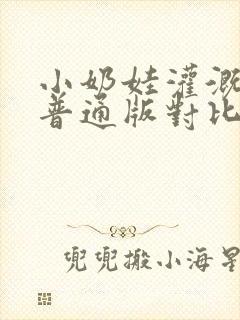 小奶娃灌溉
普通版對比
兜兜搬小海星